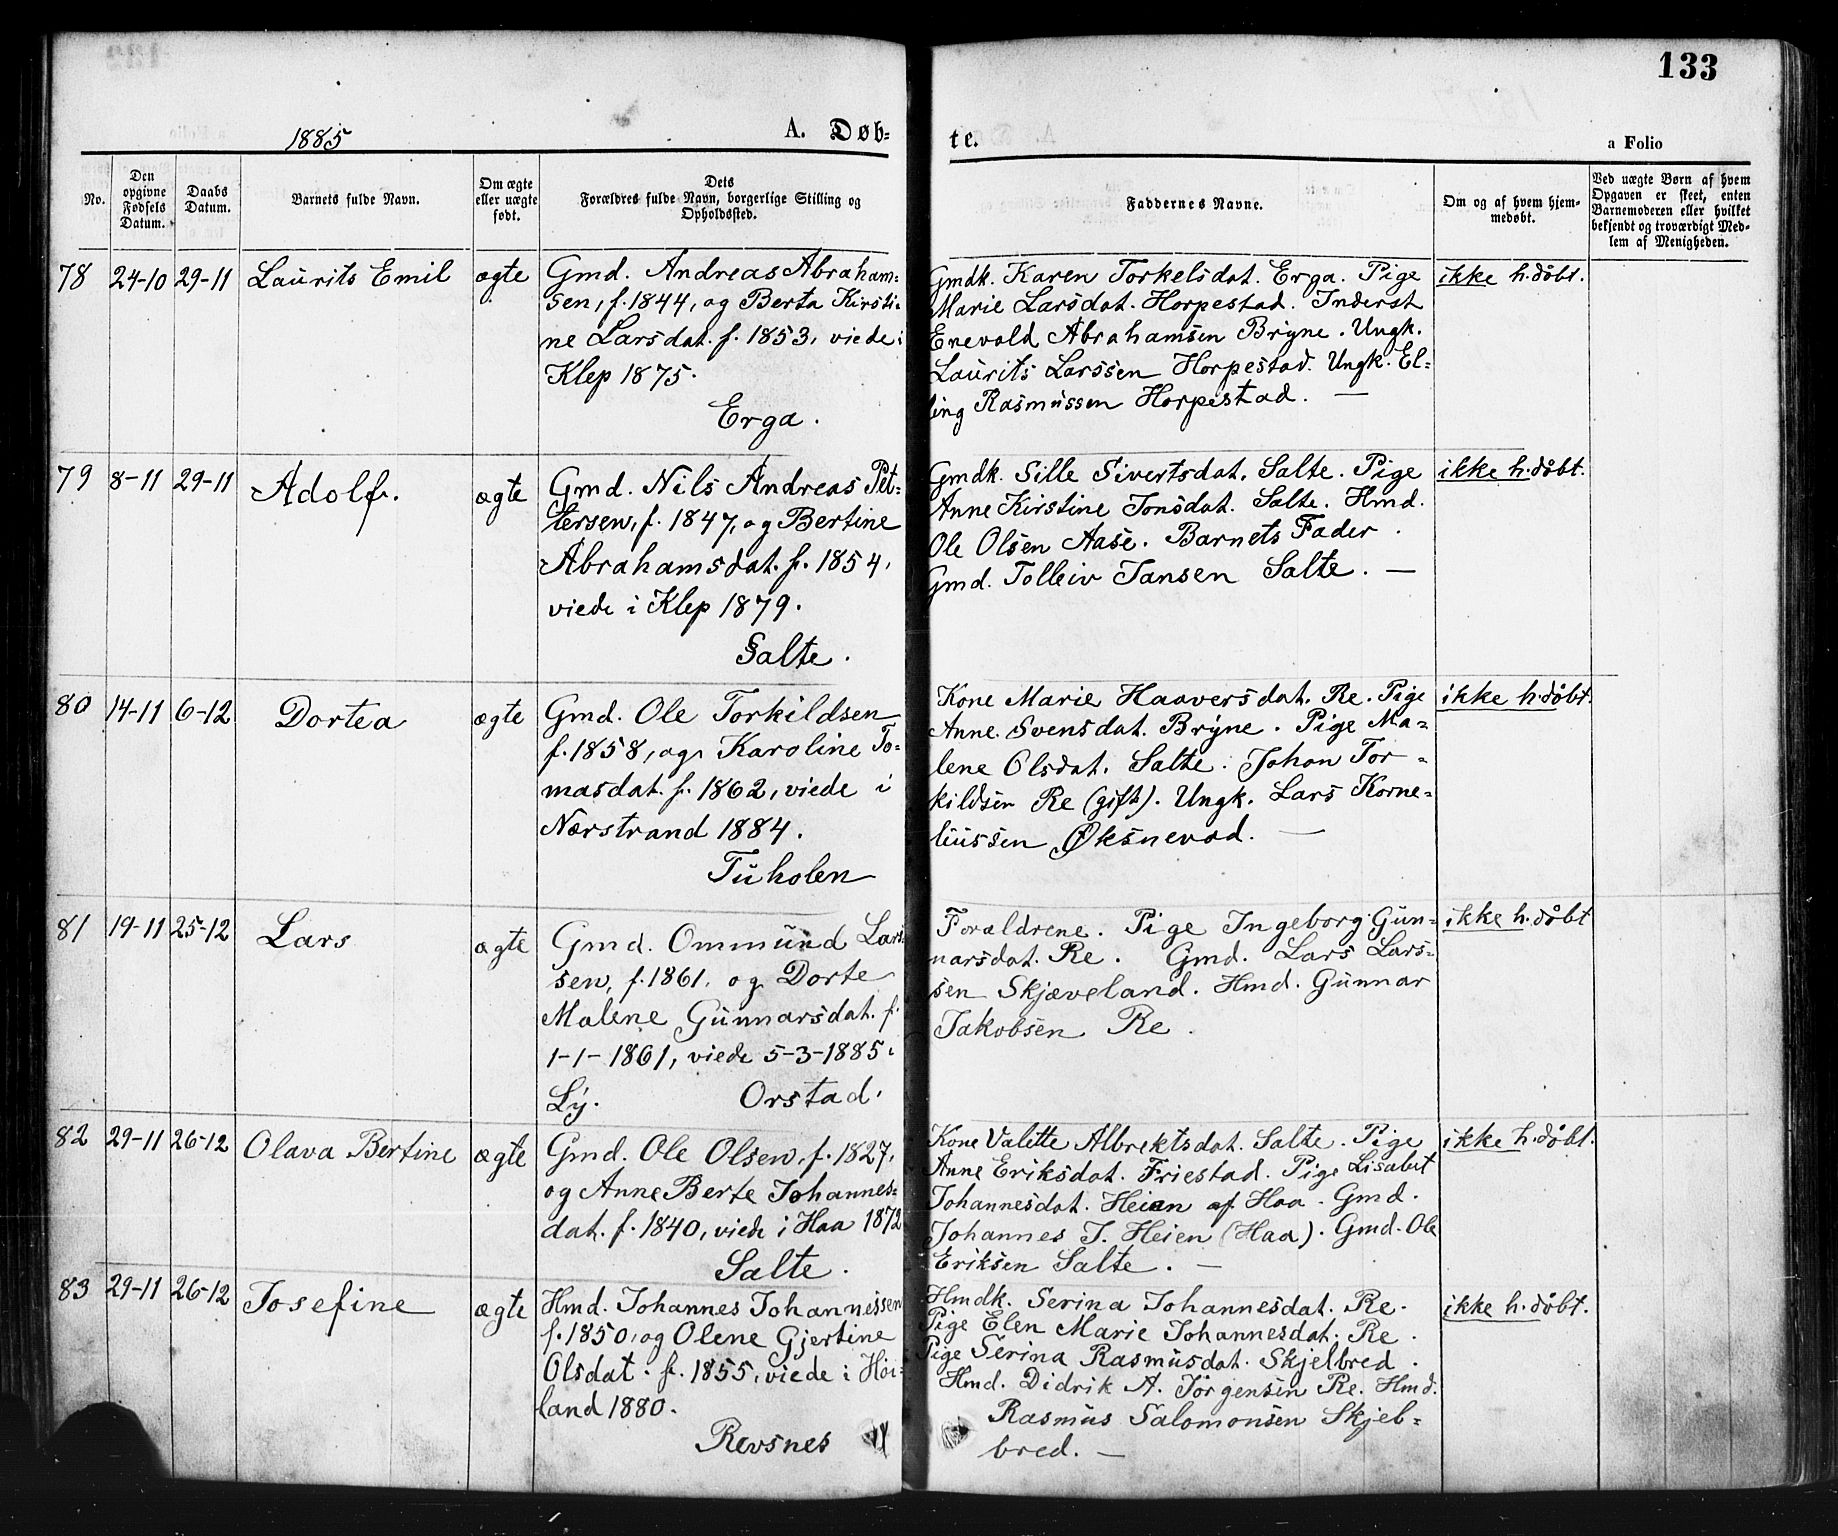 133
1885
A. Døb-
te.
a Folio
No.
Den opgivne Fødsels Datum.
Daabs Datum.
Barnets fulde Navn.
Om ægte eller uægte født.
Dets Forældres fulde Navn, borgerlige Stilling og Opholdssted.
Faddernes Navne.
Om og af hvem hjemmedøbt.
Ved uægte Børn af hvem Opgaven er skeet, enten Barnemoderen eller hvilket bekjendt og troværdigt Medlem af Menigheden.
78 24-10 29-11 Laurits Emil ægte
Gmd. Andreas Abraham-
sen, f. 1844, og Berta Kirsti-
ne Larsdat. f. 1853, viede i
Klep 1875.
Erga.
Gmdk. Karen Torkelsdat. Erga. Pige
Marie Larsdat. Horpestad. Inderst
Enevald Abrahamsen Bryne. Ungk.
Laurits Larssen Horpestad. Ungk. El-
ling Rasmussen Horpestad. —
ikke h.døbt.
79 8-11 29-11 Adolf. ægte
Gmd. Nils Andreas Pet-
tersen, f. 1847, og Bertine
Abrahamsdat. f. 1854,
viede i Klep 1879.
Salte.
Gmdk. Sille Sivertsdat. Salte. Pige
Anne Kirstine Jonsdat. Salte. Hmd.
Ole Olsen Aase. Barnets Fader.
Gmd. Tolleiv Jansen Salte. —
ikke h.døbt.
80 14-11 6-12 Dortea ægte
Gmd. Ole Torkildsen
f. 1858, og Karoline To-
masdat. f. 1862, viede i
Nærstrand 1884.
Tuholen
Kone Marie Haaversdat. Re. Pige
Anne Svensdat. Bryne. Pige Ma-
lene Olsdat. Salte. Johan Tor-
kildsen Re (gift). Ungk. Lars Korne-
liussen Øksnevad. —
ikke h.døbt.
81 19-11 25-12 Lars ægte
Gmd. Ommund Lars-
sen, f. 1861, og Dorte
Malene Gunnarsdat. f.
1-1-1861, viede 5-3-1885 i
Ly. Orstad.
Forældrene. Pige Ingeborg Gun-
narsdat. Re. Gmd. Lars Lars-
sen Skjæveland. Hmd. Gunnar
Jakobsen Re.
ikke h.døbt
82 29-11 26-12 Olava Bertine ægte
Gmd. Ole Olsen, f. 1827,
og Anne Berte Johannes-
dat. f. 1840, viede i Haa 1872
Salte.
Kone Valette Albrektsdat. Salte. Pige
Anne Eriksdat. Friestad. Pige Lisabet
Johannesdat. Heien af Haa. Gmd.
Johannes J. Heien (Haa). Gmd. Ole
Eriksen Salte. —
ikke h.døbt.
83 29-11 26-12 Josefine ægte
Hmd. Johannes Johannessen
f. 1850, og Olene Gjertine
Olsdat. f. 1855, viede i Høi-
land 1880.
Revsnes
Hmdk. Serina Johannesdat. Re.
Pige Elen Marie Johannesdat. Re.
Pige Serina Rasmusdat. Skjelbred.
Hmd. Didrik A. Jørgensen Re. Hmd.
Rasmus Salomonsen Skjel-
bred. —
ikke h.døbt.